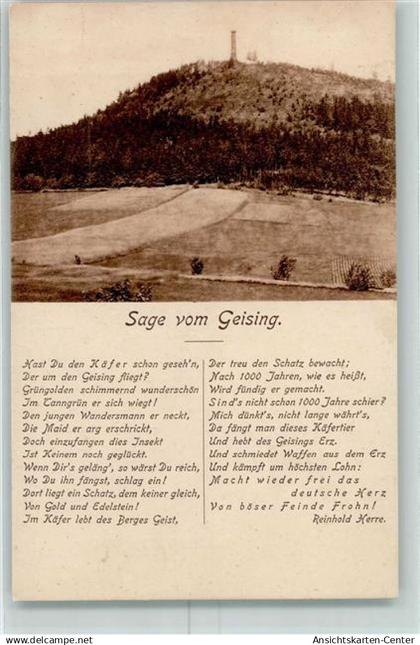 Sage vom Geising.
Hast Du den Käfer schon geseh'n,
Der um den Geising fliegt?
Grüngolden schimmernd wunderschön
Im Tanngrün er sich wiegt!
Den jungen Wandersmann er neckt,
Die Maid er arg erschrickt,
Doch einzufangen dies Insekt
Ist Keinem noch geglückt.
Wenn Dir's geläng', so wärst Du reich,
Wo Du ihn fängst, schlag ein!
Dort liegt ein Schatz, dem keiner gleich,
Von Gold und Edelstein!
Im Käfer lebt des Berges Geist,
Der treu den Schatz bewacht;
Nach 1000 Jahren, wie es heißt,
Wird fündig er gemacht.
Sind's nicht schon 1000 Jahre schier?
Mich dünkt's, nicht lange währt's,
Da fängt man dieses Käfertier
Und hebt des Geisings Erz.
Und schmiedet Waffen aus dem Erz
Und kämpft um höchsten Lohn:
Macht wieder frei das
deutsche Herz
Von böser Feinde Frohn!
Reinhold Herre.
Ansichtskarten-Center